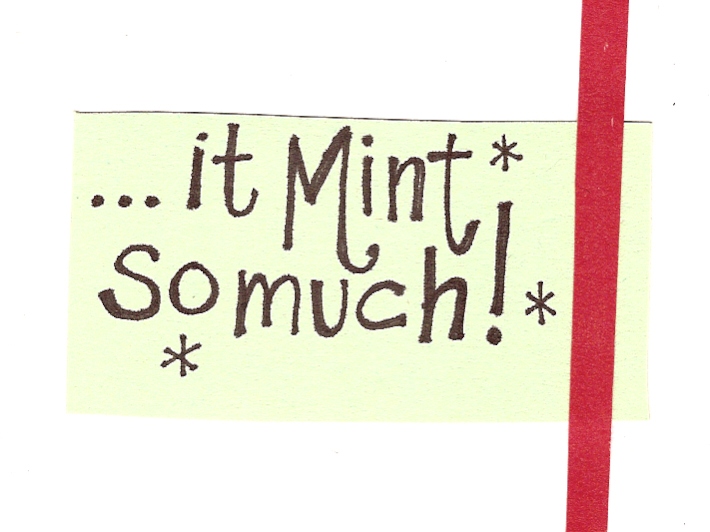 ... it Mint
So much!